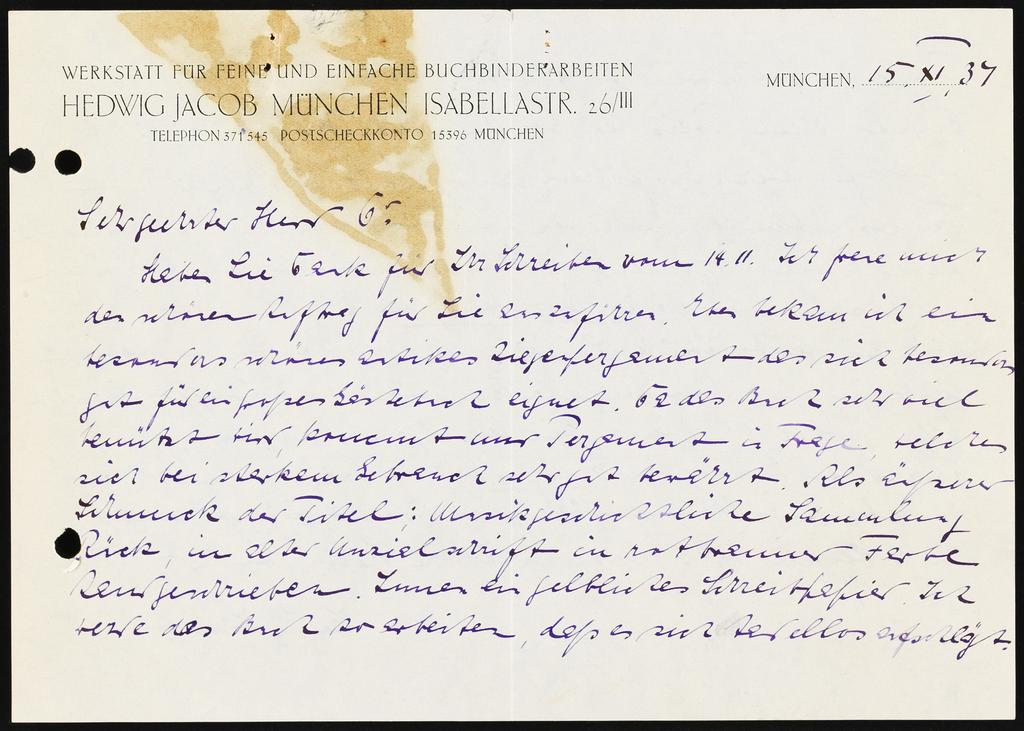 WERKSTATT FÜR FEINE UND EINFACHE BUCHBINDERARBEITEN
HEDWIG JACOB MÜNCHEN ISABELLASTR. 26/III
TELEPHON 371545 POSTSCHECKKONTO 15396 MÜNCHEN
MÜNCHEN, 15. XI. 37
Sehr geehrter Herr Dr.
Haben Sie Dank für Ihr Schreiben vom 14.11. Ich freue mich
den schönen Auftrag für Sie auszuführen. Eben bekam ich ein
besonders schönes antikes Ziegenpergament das sich besonders
gut für ein großes Gästebuch eignet. Da das Buch sehr viel
benützt wird, kommt nur Pergament in Frage, welches
sich bei starkem Gebrauch sehr gut bewährt. Als äußerer
Schmuck der Titel: Musikgeschichtliche Sammlung
Rück, in alter Unzialschrift in rotbrauner Farbe
handgeschrieben. Innen ein gelbliches Schreibpapier. Ich
werde das Buch so arbeiten, daß es sich tadellos aufschlägt.